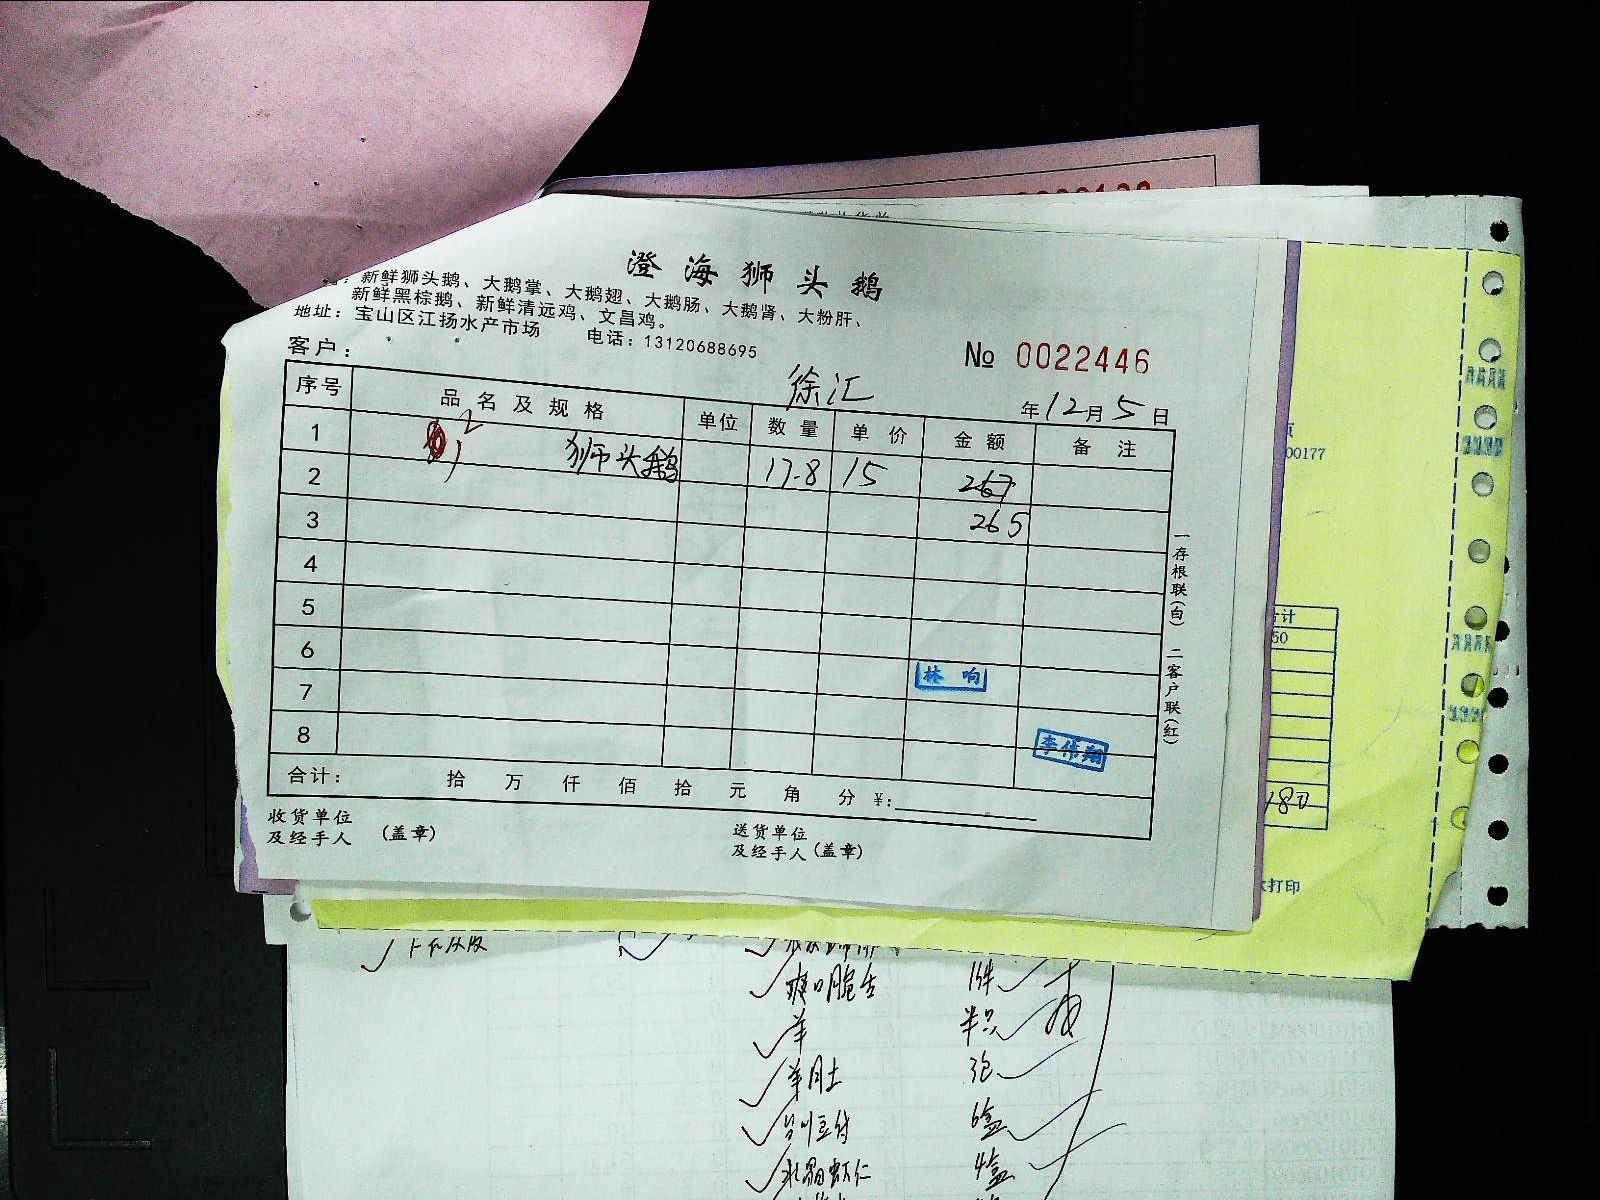 澄海狮头鹅
新鲜狮头鹅、大鹅掌、大鹅翅、大鹅肠、大鹅肾、大粉肝、
新鲜黑棕鹅、新鲜清远鸡、文昌鸡。
地址：宝山区江扬水产市场 电话：13120688695
客户： № 0022446
徐汇 年12月5日
序号 品名及规格 单位 数量 单价 金额 备注
1 狮头鹅 17.8 15 267
2
265
3
4
5
6
林响
7
8
李伟翔
合计： 拾 万 仟 佰 拾 元 角 分 ¥:
收货单位
及经手人 (盖章)
送货单位
及经手人(盖章)
一存根联(白) 二客户联(红)
00177
合计
50
180
打印
爽口脆
1件
羊
半只
羊肚
3包
豆付
6盒
水晶虾仁
4盒